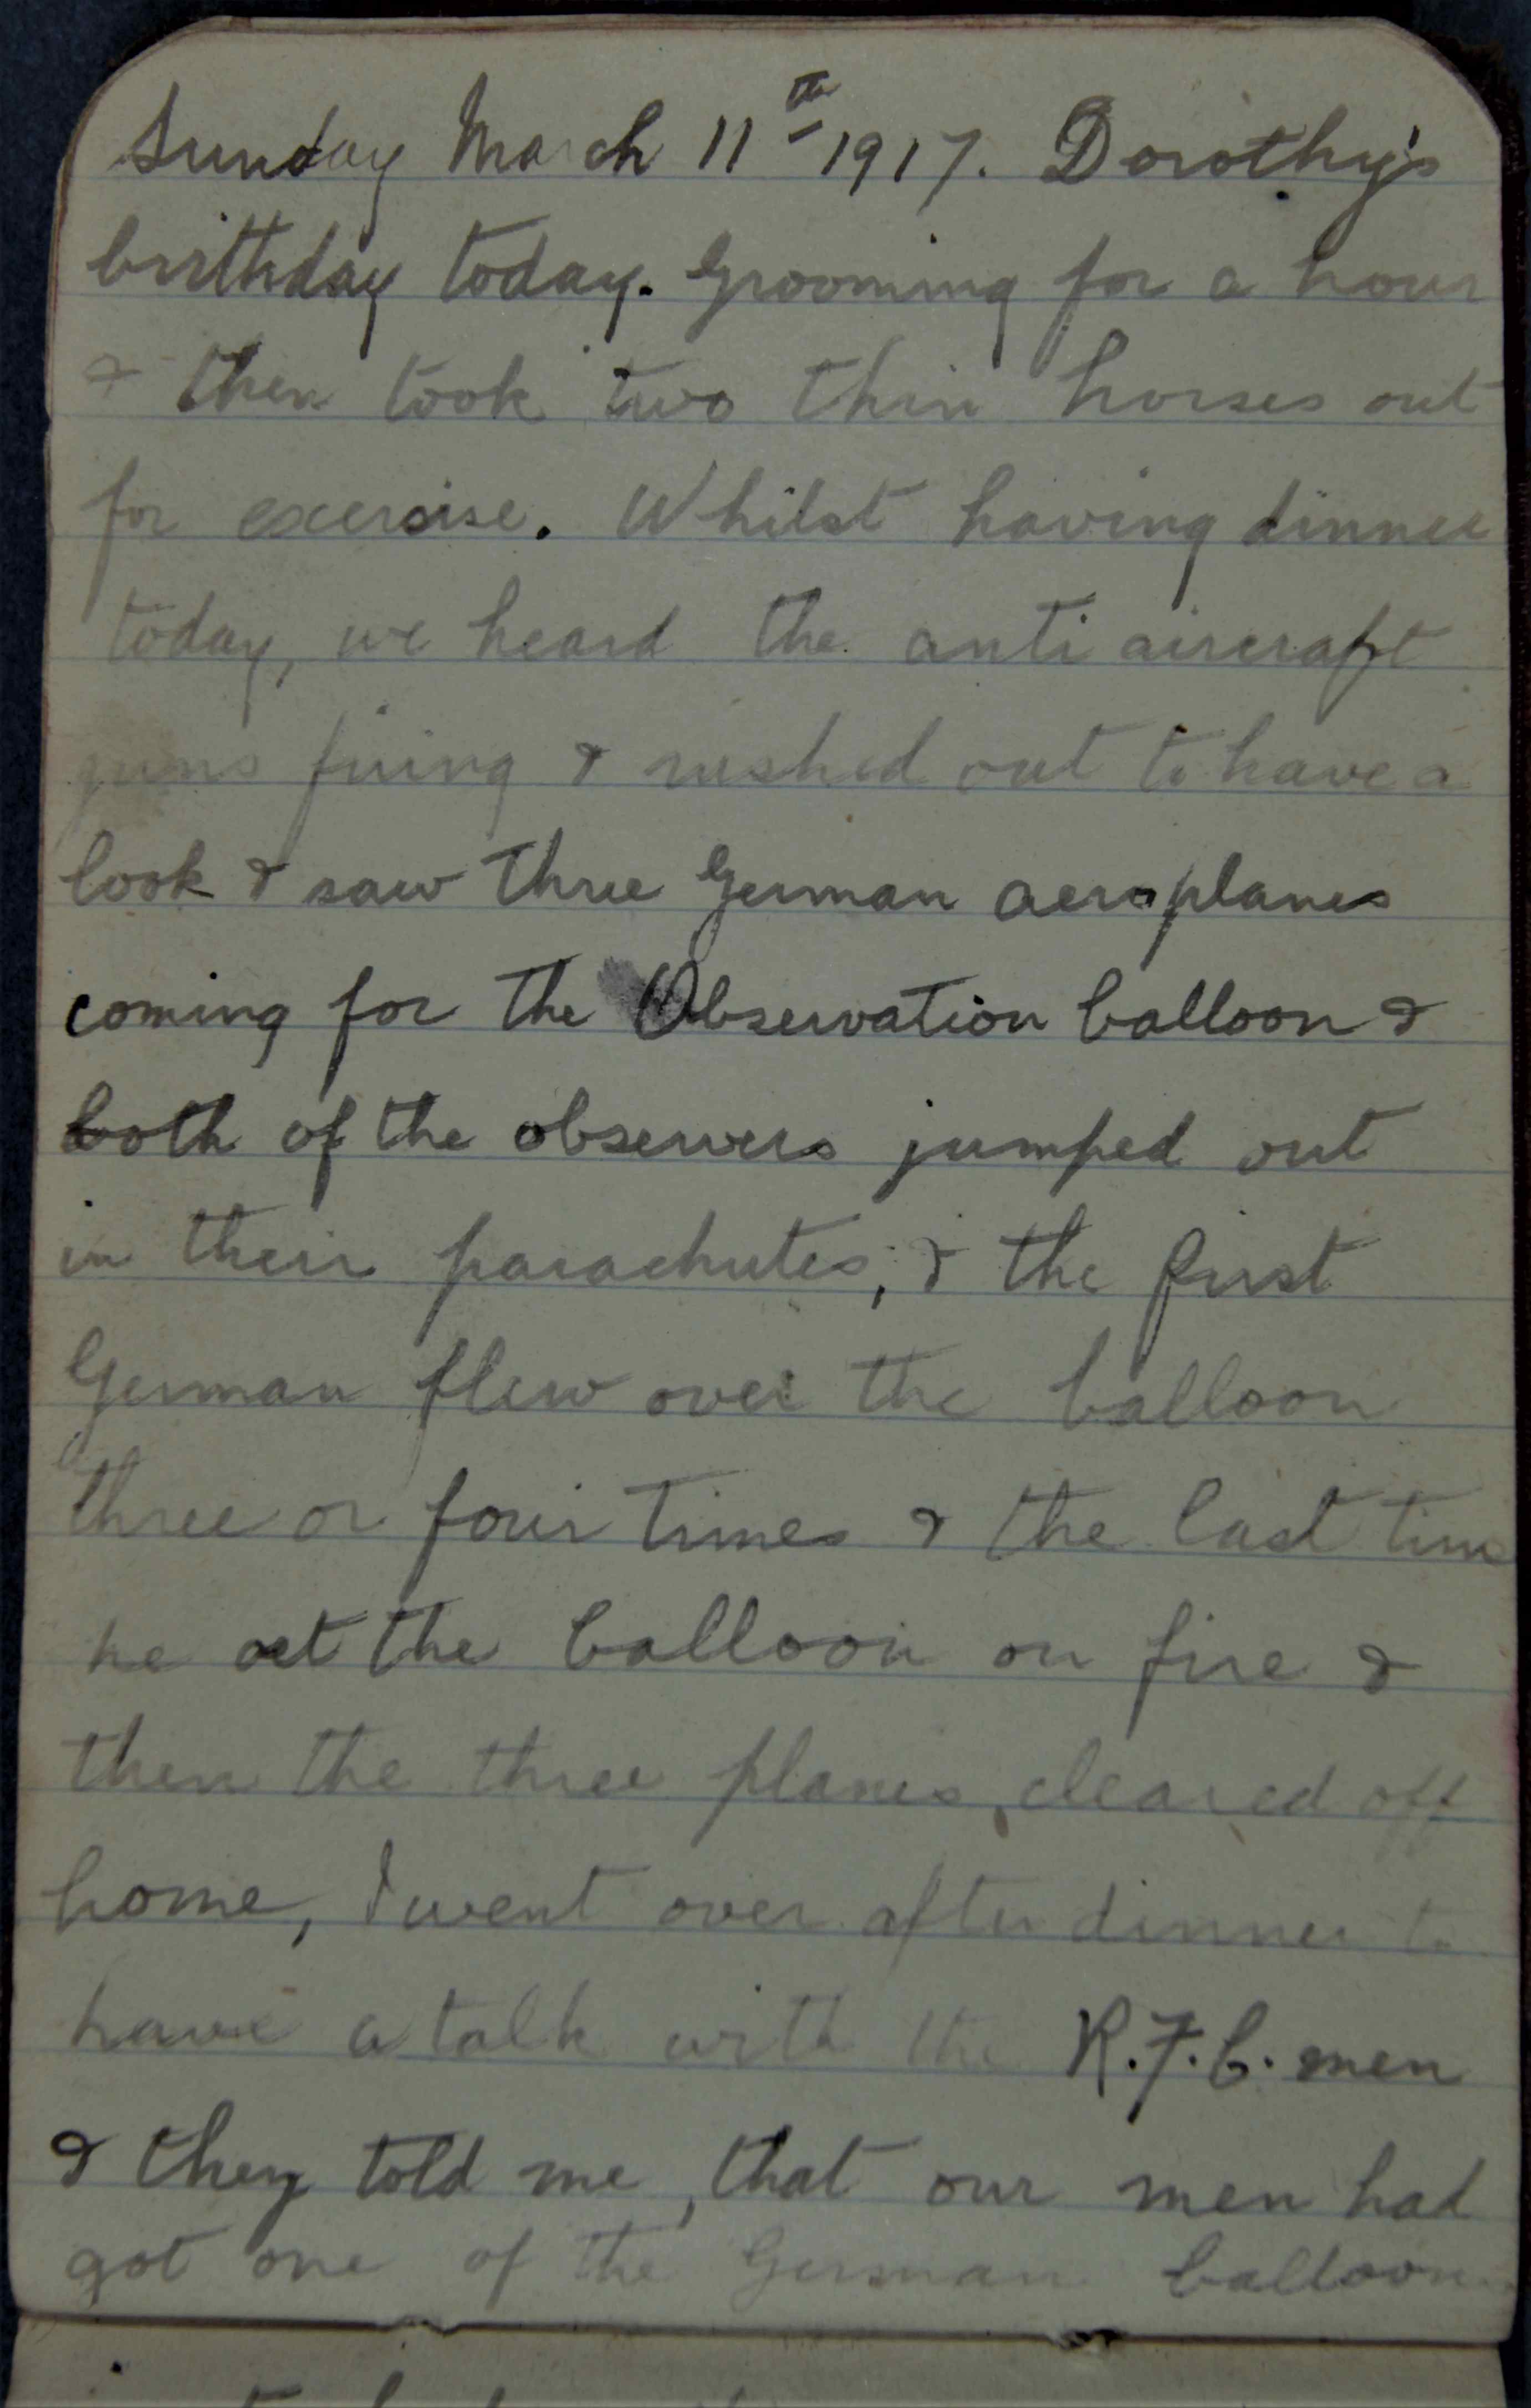 Sunday March 11th 1917. Dorothy's
birthday today. Grooming for a hour
& then took two thin horses out
for exercise. Whilst having dinner
today, we heard the anti aircraft
guns firing & rushed out to have a
look & saw three German aeroplanes
coming for the Observation balloon &
both of the observers jumped out
in their parachutes, & the first
German flew over the balloon
three or four times & the last time
he set the balloon on fire &
then the three planes, cleared off
home, I went over after dinner to
have a talk with the R.F.C. men
& they told me, that our men had
got one of the German balloons